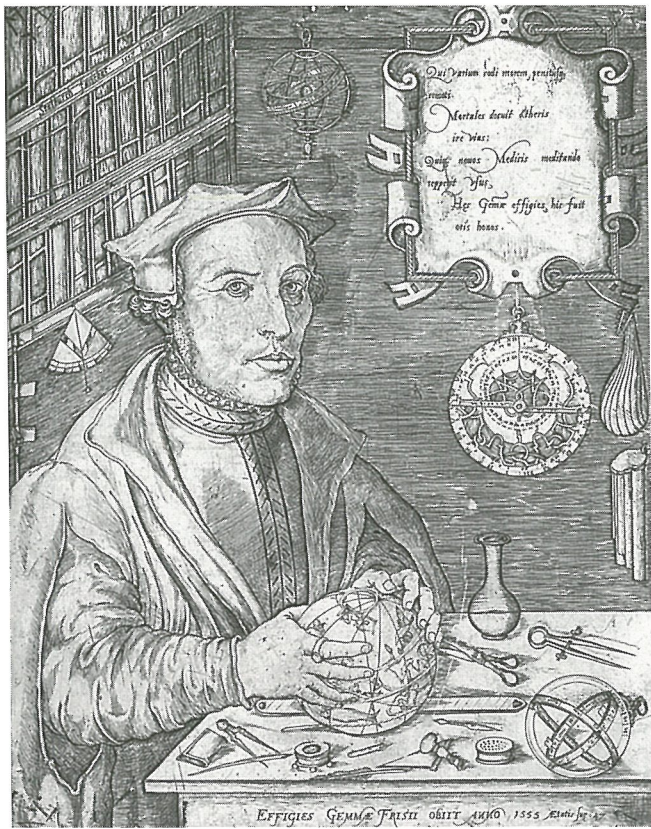 Qui varium cœli morem, penitusq
remotas
Mortales docuit ætheris
ire vias:
Quiq nouos Medicis meditando
repperit vsus,
Hęc Gemæ effigies, hic fuit
oris honos.
EFFIGIES GEMMÆ FRISII OBIIT ANNO 1555 Ætatis suę 47